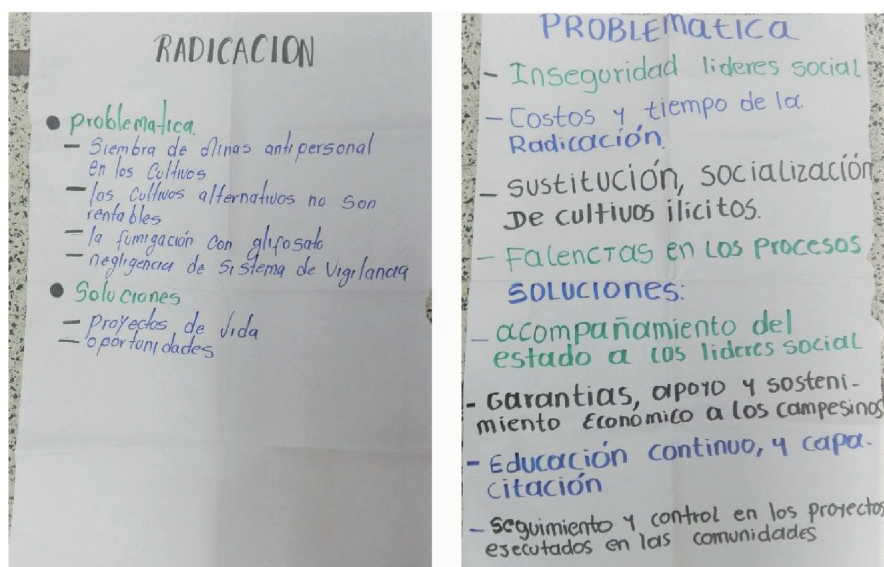 RADICACION
● problematica.
– Siembra de Minas antipersonal
en los Cultivos
– los Cultivos alternativos no son
rentables
– la fumigación con glifosato
– negligencia de Sistema de Vigilancia
● Soluciones
– proyectos de vida
– oportunidades
PROBLEMATICA
– Inseguridad lideres social
– Costos y tiempo de la
Radicación.
– Sustitución, socialización
De cultivos ilicitos.
– Falencias en los procesos
SOLUCIONES:
– acompañamiento del
estado a los lideres social
– Garantias, apoyo y sosteni-
miento Económico a los campesinos
– Educación continuo, y capa-
citación
– seguimiento y control en los proyectos
esecutados en las comunidades